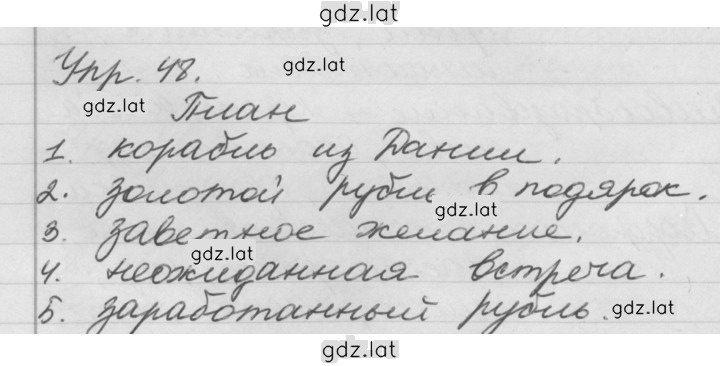 gdz.lat
Упр. 48.
gdz.lat
gdz.lat
План
1. корабль из Дании.
2. золотой рубль в подярок.
gdz.lat
3. заветное желание.
gdz.lat
4. неожиданная встреча.
5. заработанный рубль.
gdz.lat
gdz.lat